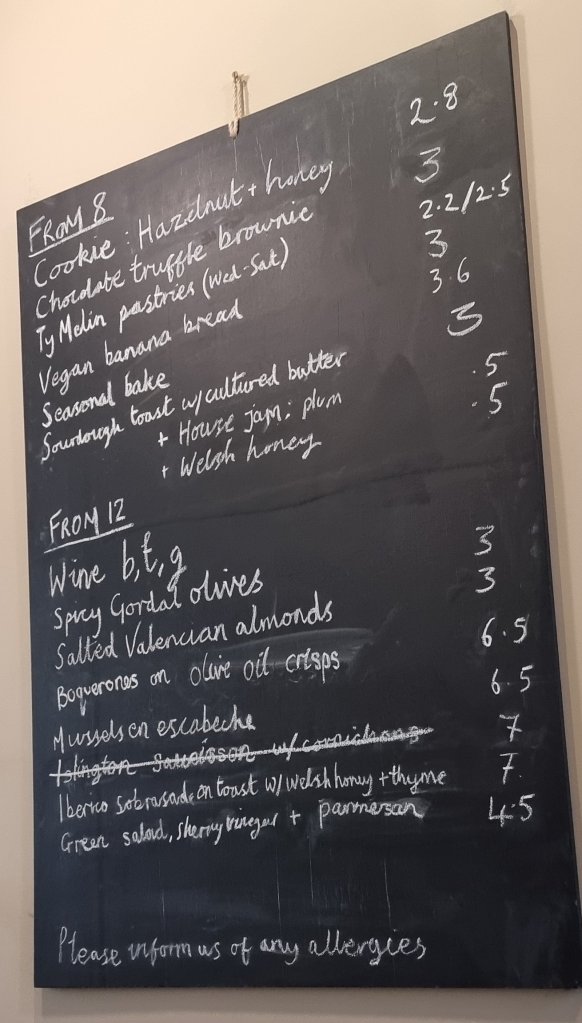 FROM 8
Cookie: Hazelnut + honey 2.8
Chocolate truffle brownie 3
Ty Melin pastries (Wed-Sat) 2.2/2.5
Vegan banana bread 3
Seasonal bake 3.6
Sourdough toast w/ cultured butter 3
+ House jam: plum .5
+ Welsh honey .5
FROM 12
Wine b, t, g
Spicy Gordal olives 3
Salted Valencian almonds 3
Boquerones on olive oil crisps 6.5
Mussels en escabeche 6.5
Islington saucisson w/ cornichons 7
Iberico sobrasada on toast w/ welsh honey + thyme 7.
Green salad, sherry vinegar + parmesan 4.5
Please inform us of any allergies